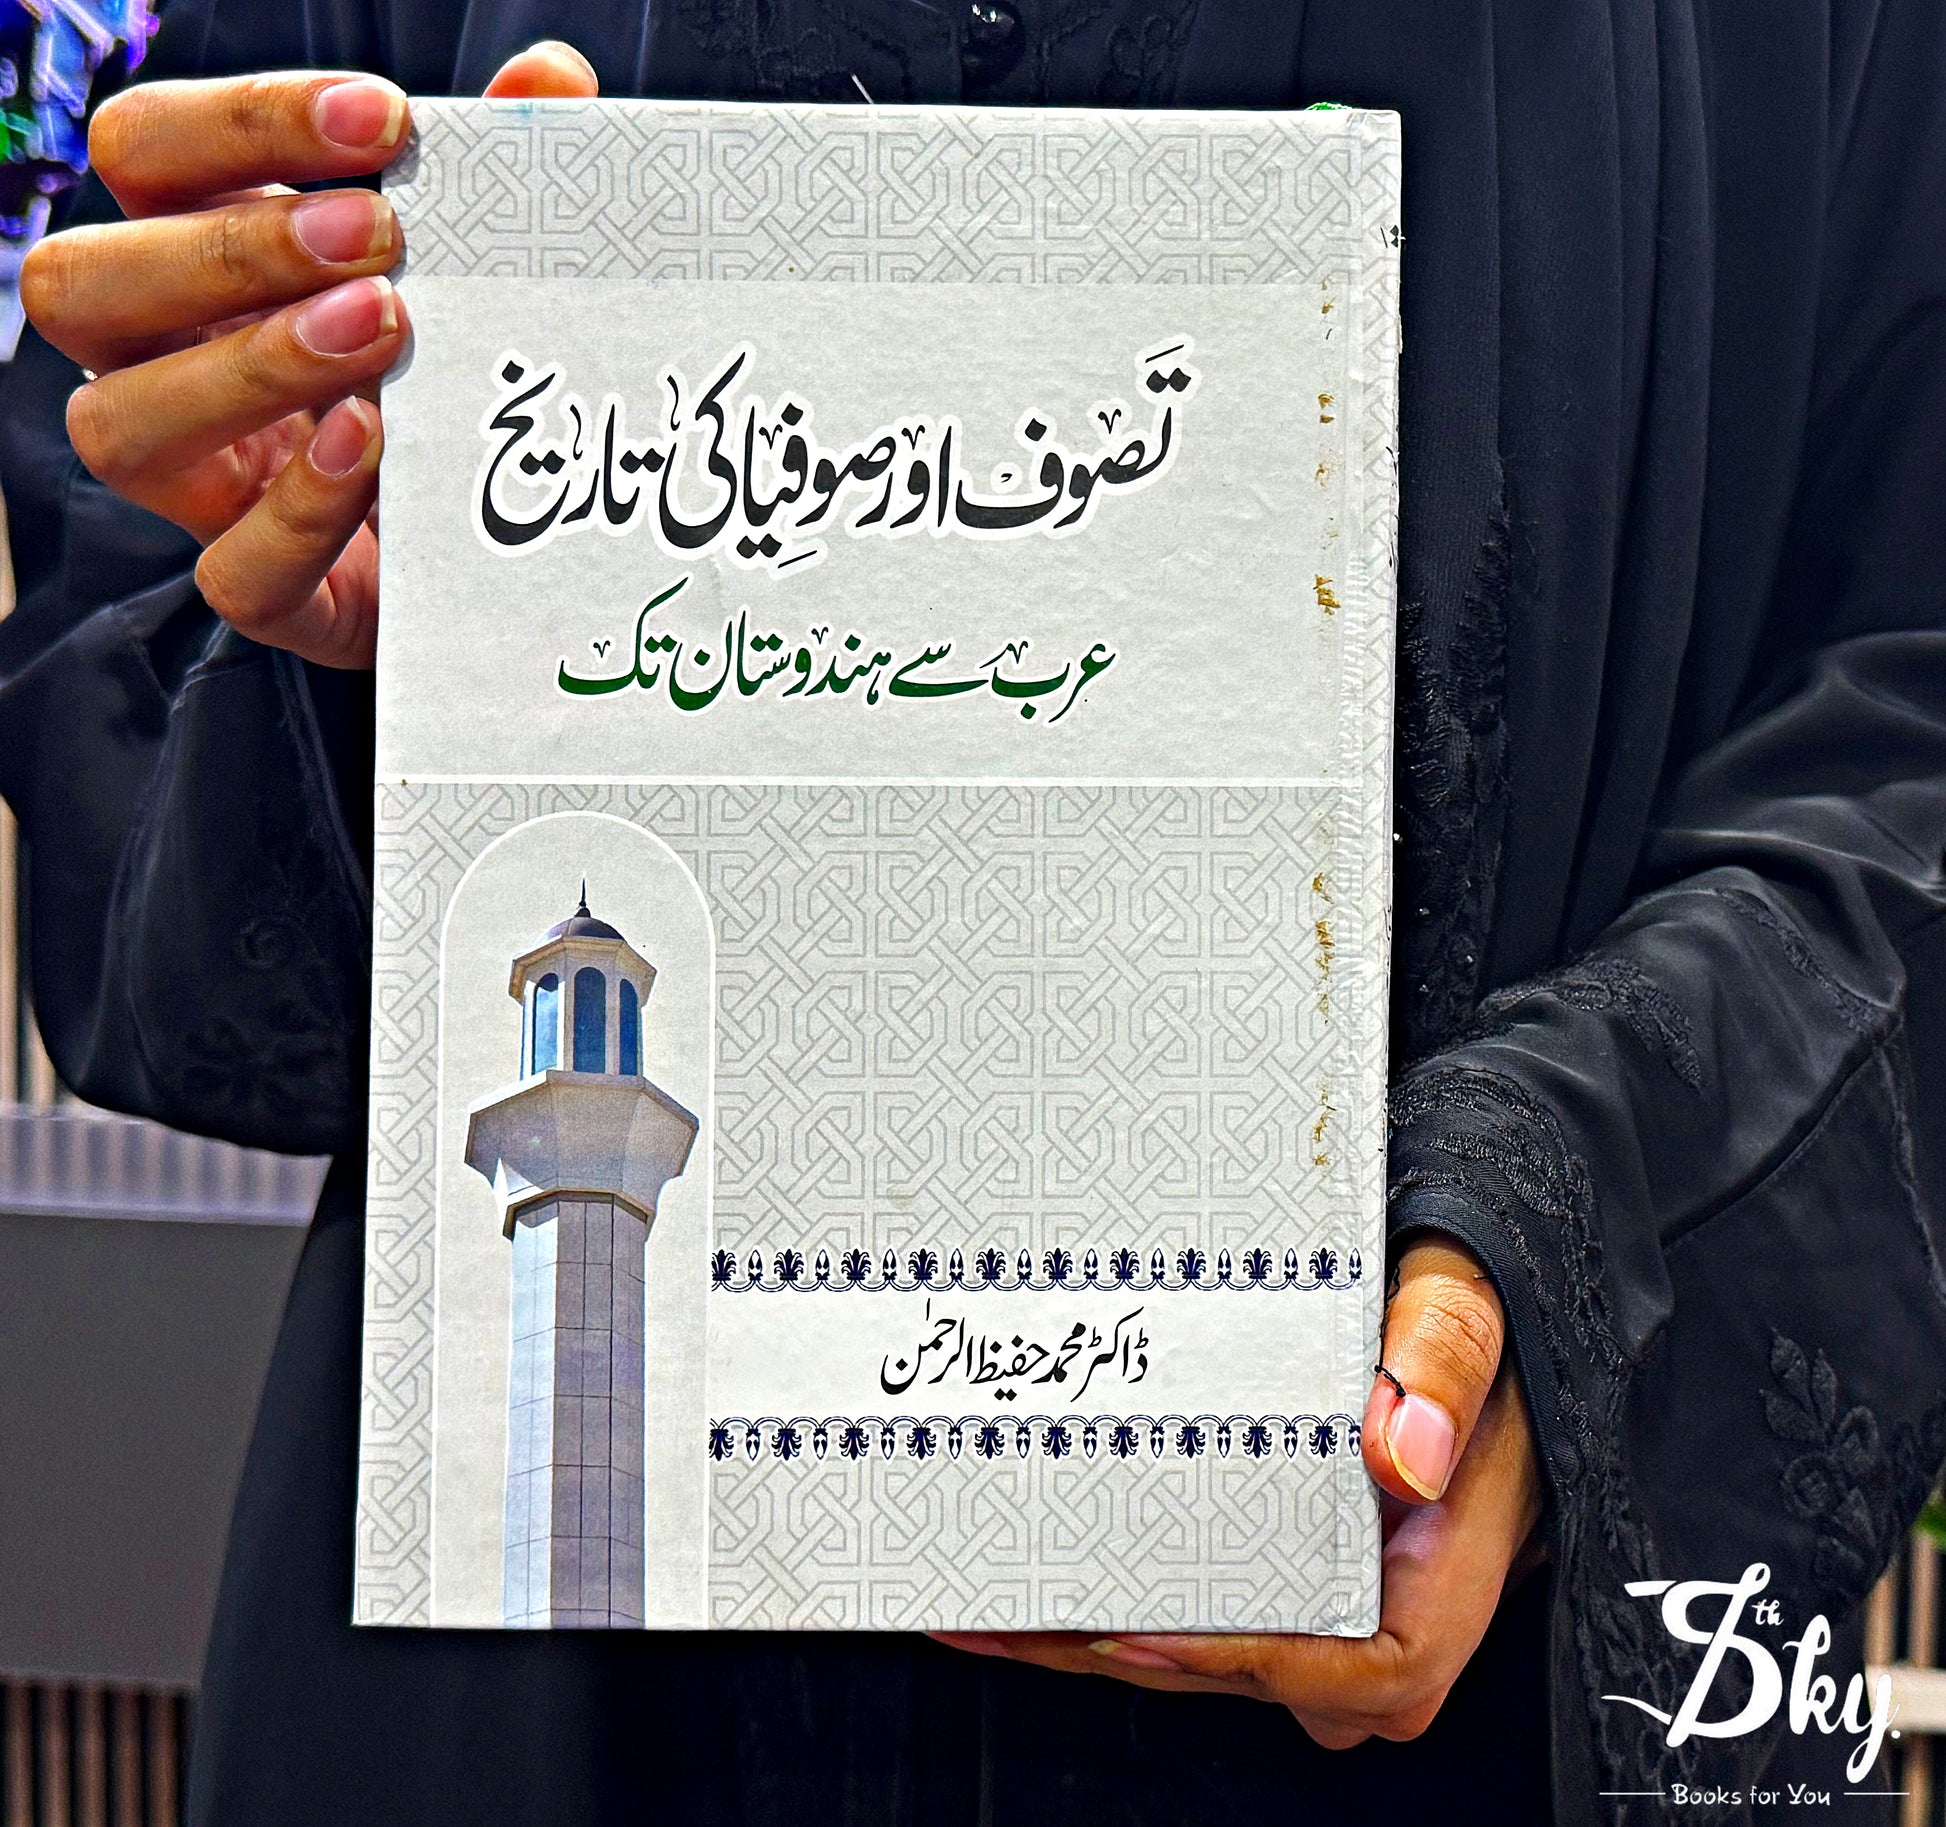 تَصوف اور صوفِیا کی تاریخ
عرب سے ہندوستان تک
ڈاکٹر محمد حفیظ الرحمٰن
7th Sky.
Books for You